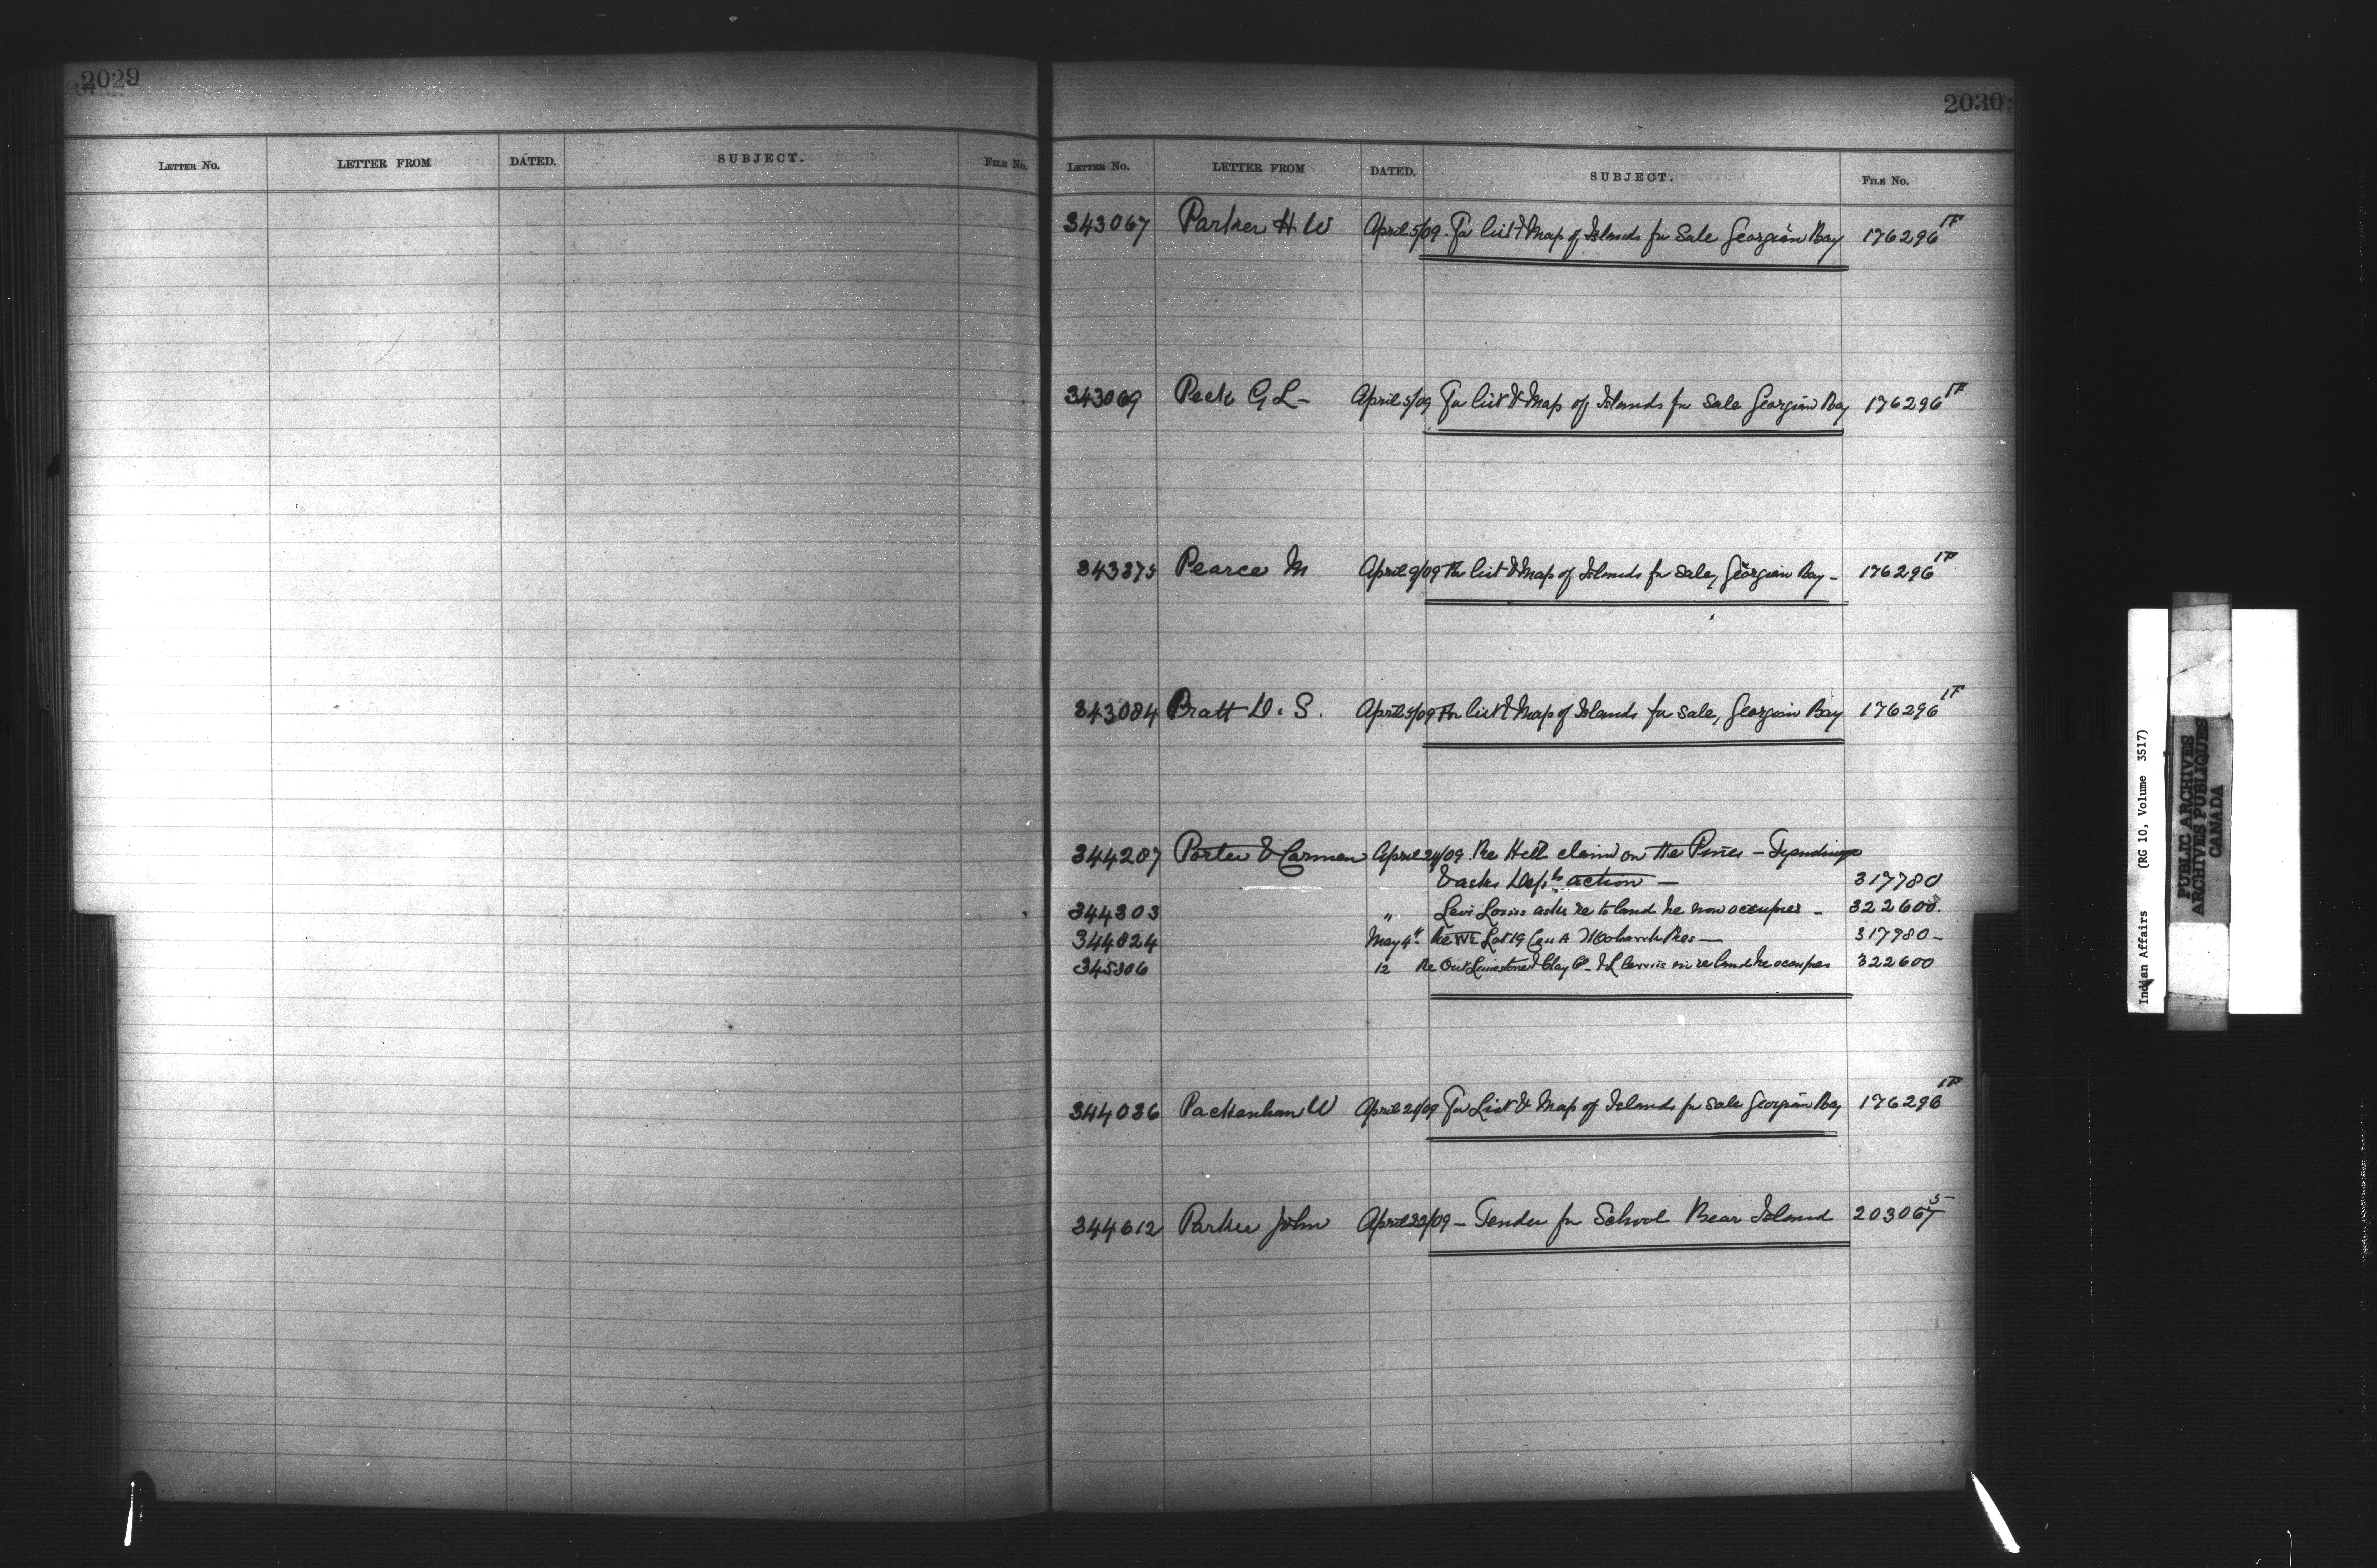 2029
LETTER No. LETTER FROM DATED. SUBJECT. FILE No.
2030
LETTER No. LETTER FROM DATED. SUBJECT. FILE No.
343067 Parker H W April 5/09 For list & Map of Islands for Sale Georgian Bay 176296 1F
343069 Peck G L - April 5/09 For list & Map of Islands for sale Georgian Bay 176296 1F
343375 Pearce M April 9/09 For list & Map of Islands for sale, Georgian Bay - 176296 1F
343084 Pratt D. S. April 5/09 For list & Map of Islands for sale, Georgian Bay 176296 1F
344207 Porter & Carman April 24/09 Re Hill claim on the Pines - Tyendinaga
& asks Dept's action - 317780
344303 " Levi Loviss asks re to land he now occupies - 322600.
344824 May 4th Re W½ Lot 19 Con A Mohawk Res - 317980 -
345306 12 Re Ont Limestone & Clay Co. & L re land he occupies 322600
344036 Packenham W April 21/09 For List & Map of Islands for sale Georgian Bay 176296 1F
344612 Parker John April 22/09 - Tender for School Bear Island 203067 5
Indian Affairs (RG 10, Volume 3517)
PUBLIC ARCHIVES
ARCHIVES PUBLIQUES
CANADA